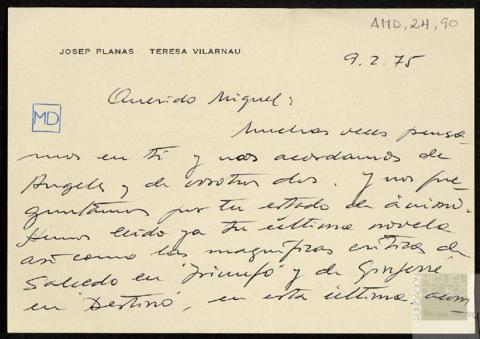 AMD, 24, 90
JOSEP PLANAS TERESA VILARNAU
9.2.75
Querido Miguel:
MD
Muchas veces pensa-
mos en ti y nos acordamos de
Angeles y de vosotros dos. Y nos pre-
guntamos por tu estado de ánimo.
Hemos leido ya tu última novela
así como las magníficas críticas de
Salcedo en "Triunfo" y de Gimferré
en "Destino", en esta última
FUNDACIÓN
MIGUEL
DELIBES